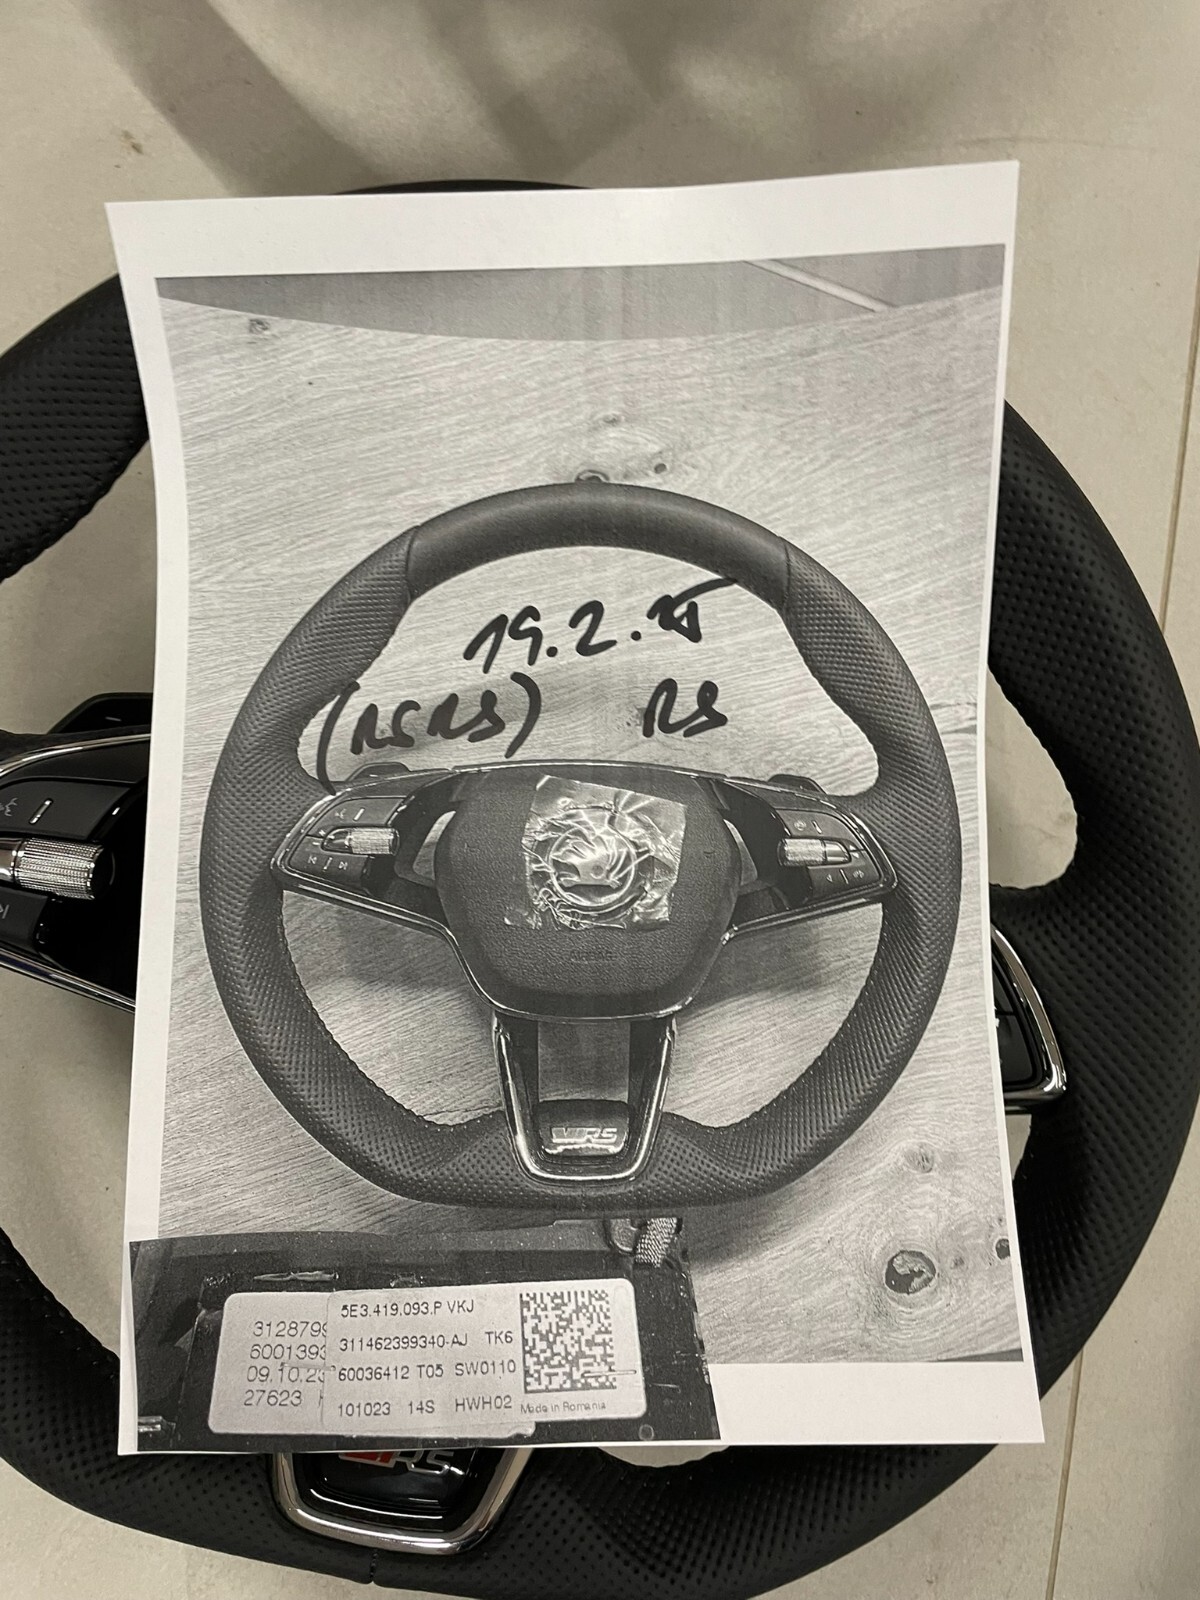 19.2.25
(RSRS) RS
AIRBAG
RS
5E3.419.093.P VKJ
311462399340-AJ TK6
60036412 T05 SW0110
101023 14S HWH02
Made in Romania
3128799
6001393
09.10.23
27623
RS